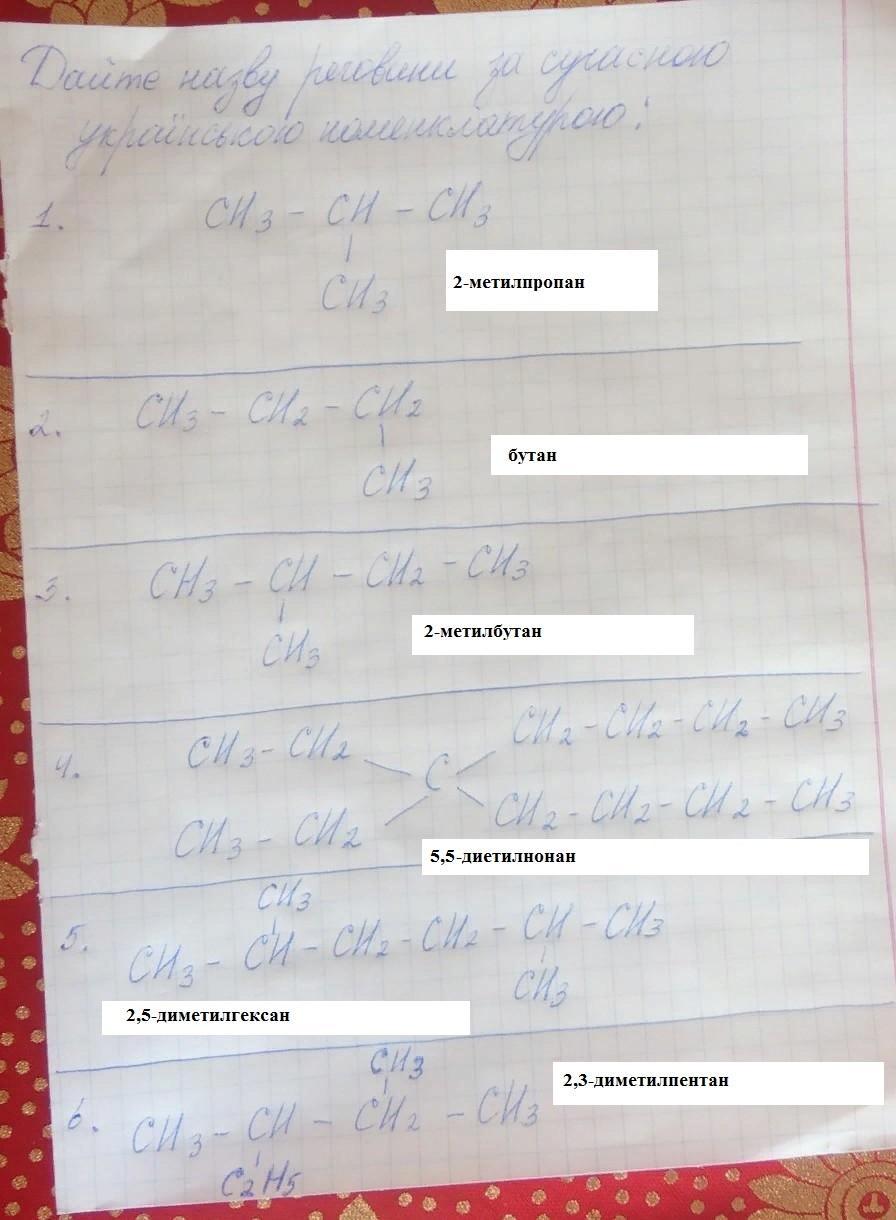 Дайте назву речовини за сучасною
українською номенклатурою:
1. CH3 – CH – CH3
CH3
2-метилпропан
2. CH3 – CH2 – CH2
CH3
бутан
3. CH3 – CH – CH2 – CH3
CH3
2-метилбутан
4. CH3 – CH2 C CH2 – CH2 – CH2 – CH3
CH3 – CH2 CH2 – CH2 – CH2 – CH3
5,5-диетилнонан
CH3
5. CH3 – CH – CH2 – CH2 – CH – CH3
CH3
2,5-диметилгексан
CH3
2,3-диметилпентан
6. CH3 – CH – CH2 – CH3
C2H5